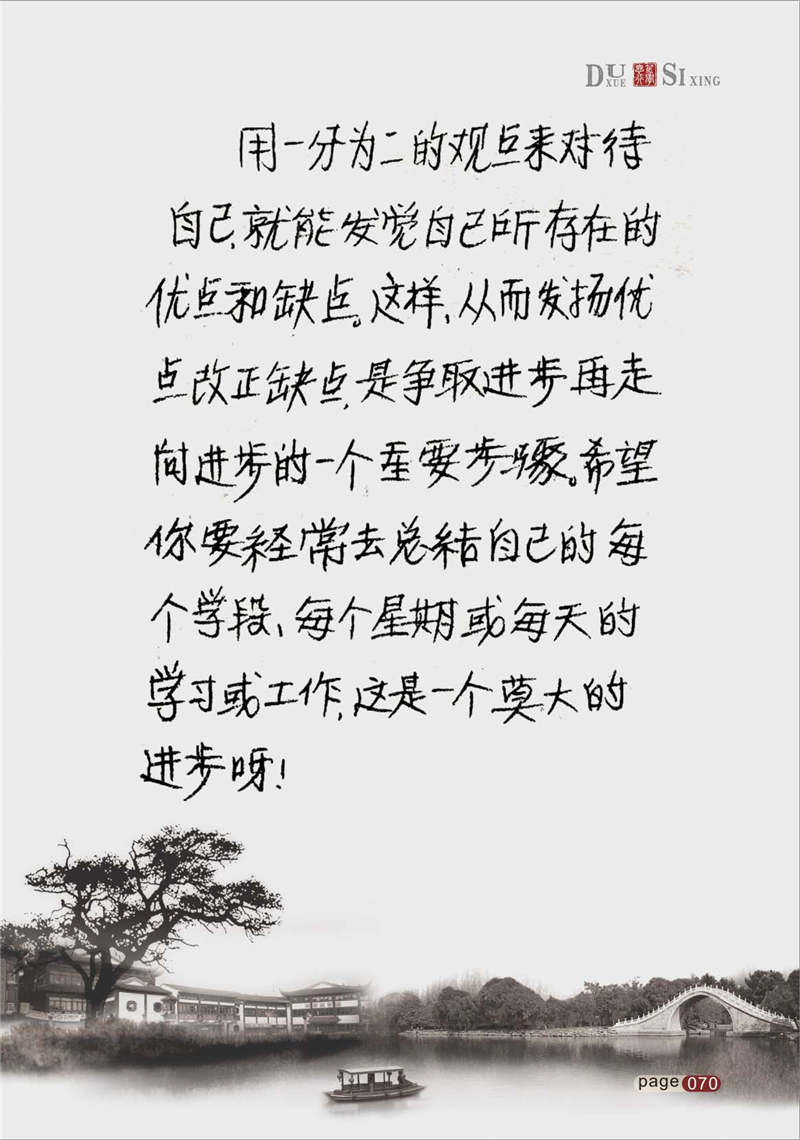 DU XUE SI XING
用一分为二的观点来对待
自己,就能发觉自己所存在的
优点和缺点。这样,从而发扬优
点改正缺点,是争取进步再走
向进步的一个重要步骤。希望
你要经常去总结自己的每
个学段、每个星期或每天的
学习或工作,这是一个莫大的
进步呀!
page 070